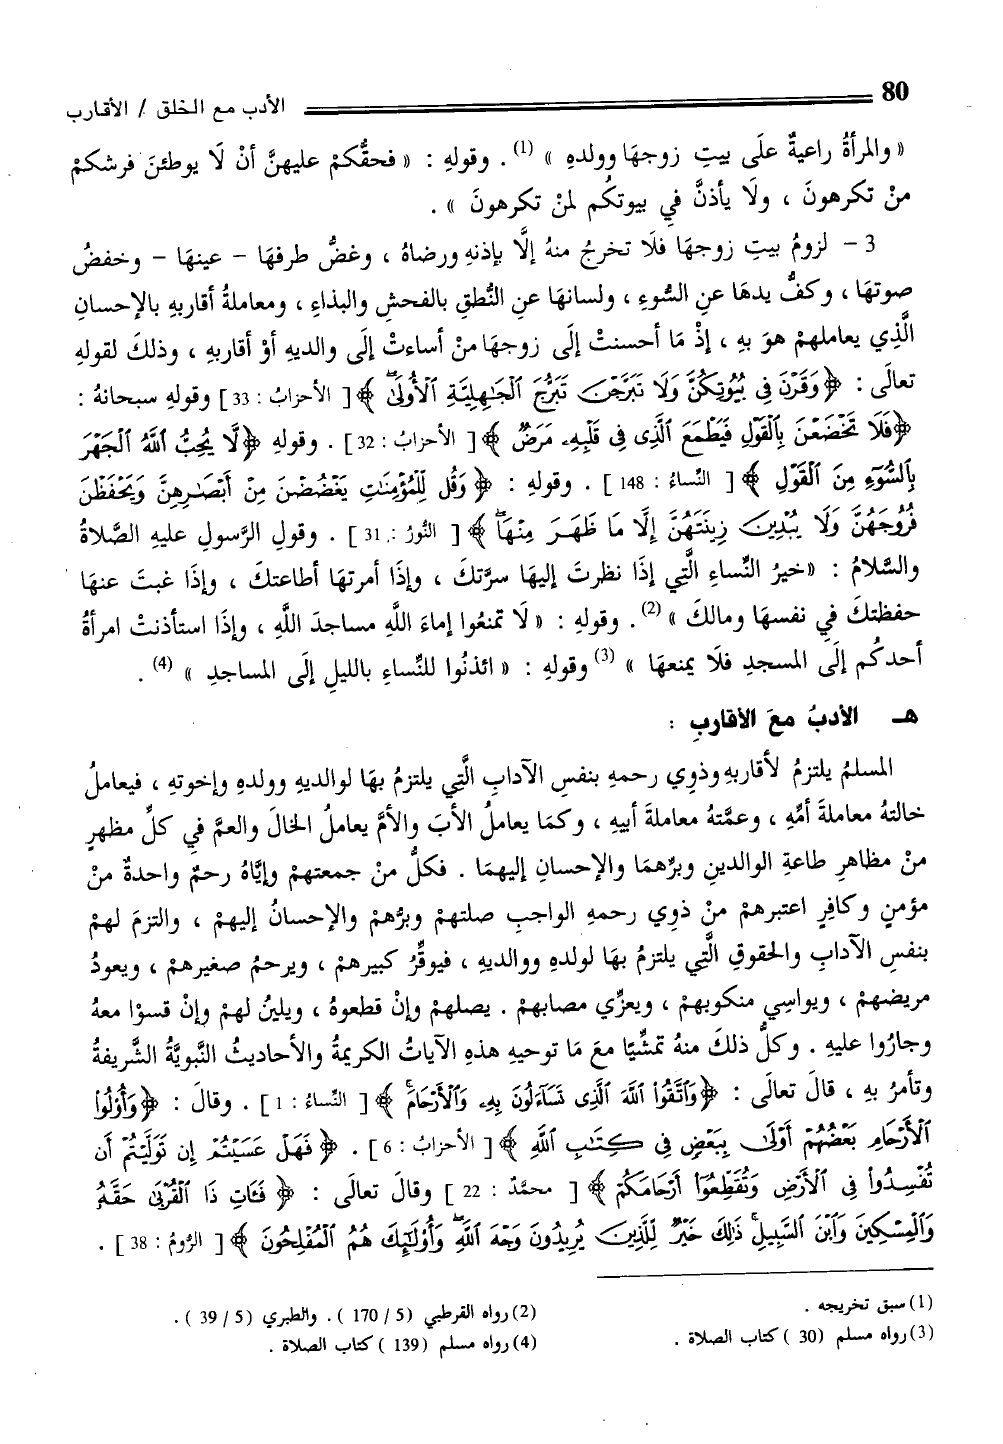 80 الأدب مع الخلق / الأقارب
« والمرأةُ راعيةٌ علَى بيتِ زوجهَا وولدهِ » (1) . وقولهِ : « فحقُّكمْ عليهنَّ أنْ لَا يوطئنَ فرشكمْ
منْ تكرهونَ ، ولَا يأذنَّ فِي بيوتكُم لمنْ تكرهونَ » .
3 – لزومُ بيتِ زوجهَا فلَا تخرجُ منهُ إلَّا بإذنهِ ورضاهُ ، وغضُّ طرفهَا – عينهَا – وخفضُ
صوتهَا ، وكفُّ يدهَا عنِ السُّوءِ ، ولسانهَا عنِ النُّطقِ بالفحشِ والبذاءِ ، ومعاملةُ أقاربهِ بالإحسانِ
الَّذِي يعاملهمْ هوَ بهِ ، إذْ مَا أحسنتْ إلَى زوجهَا منْ أساءتْ إلَى والديهِ أوْ أقاربهِ ، وذلكَ لقولهِ
تعالَى : ﴿ وَقَرْنَ فِى بُيُوتِكُنَّ وَلَا تَبَرَّجْنَ تَبَرُّجَ ٱلْجَٰهِلِيَّةِ ٱلْأُولَىٰ ﴾ [ الأحزابُ : 33 ] وقولهِ سبحانهُ :
﴿فَلَا تَخْضَعْنَ بِٱلْقَوْلِ فَيَطْمَعَ ٱلَّذِى فِى قَلْبِهِۦ مَرَضٌ ﴾ [ الأحزابُ : 32 ] . وقولهِ ﴿لَّا يُحِبُّ ٱللَّهُ ٱلْجَهْرَ
بِٱلسُّوٓءِ مِنَ ٱلْقَوْلِ ﴾ [ النِّساءُ : 148 ] . وقولهِ : ﴿ وَقُل لِّلْمُؤْمِنَٰتِ يَغْضُضْنَ مِنْ أَبْصَٰرِهِنَّ وَيَحْفَظْنَ
فُرُوجَهُنَّ وَلَا يُبْدِينَ زِينَتَهُنَّ إِلَّا مَا ظَهَرَ مِنْهَا ﴾ [ النُّورُ : 31 ] . وقولِ الرَّسولِ عليهِ الصَّلاةُ
والسَّلامُ : «خيرُ النِّساءِ الَّتِي إذَا نظرتَ إليهَا سرَّتكَ ، وإذَا أمرتهَا أطاعتكَ ، وإذَا غبتَ عنهَا
حفظتكَ فِي نفسهَا ومالكَ » (2) . وقولهِ : « لَا تمنعُوا إماءَ اللَّهِ مساجدَ اللَّهِ ، وإذَا استأذنتْ امرأةُ
أحدكُم إلَى المسجدِ فلَا يمنعهَا » (3) وقولهِ : « ائذنُوا للنِّساءِ بالليلِ إلَى المساجدِ » (4) .
هـ الأدبُ معَ الأقاربِ :
المسلمُ يلتزمُ لأقاربهِ وذوِي رحمهِ بنفسِ الآدابِ الَّتِي يلتزمُ بهَا لوالديهِ وولدهِ وإخوتهِ ، فيعاملُ
خالتهُ معاملةَ أمِّهِ ، وعمَّتهُ معاملةَ أبيهِ ، وكمَا يعاملُ الأبَ والأمَّ يعاملُ الخالَ والعمَّ فِي كلِّ مظهرٍ
منْ مظاهرِ طاعةِ الوالدينِ وبرِّهمَا والإحسانِ إليهمَا . فكلُّ منْ جمعتهمْ وإيَّاهُ رحمٌ واحدةٌ منْ
مؤمنٍ وكافرٍ اعتبرهمْ منْ ذوِي رحمهِ الواجبِ صلتهمْ وبرُّهمْ والإحسانُ إليهمْ ، والتزمَ لهمْ
بنفسِ الآدابِ والحقوقِ الَّتِي يلتزمُ بهَا لولدهِ ووالديهِ ، فيوقِّرُ كبيرهمْ ، ويرحمُ صغيرهمْ ، ويعودُ
مريضهمْ ، ويواسِي منكوبهمْ ، ويعزِّي مصابهمْ . يصلهمْ وإنْ قطعوهُ ، ويلينُ لهمْ وإنْ قسوْا معهُ
وجارُوا عليهِ . وكلُّ ذلكَ منهُ تمشِّيًا معَ مَا توحيهِ هذهِ الآياتُ الكريمةُ والأحاديثُ النَّبويَّةُ الشَّريفةُ
وتأمرُ بهِ ، قالَ تعالَى : ﴿وَٱتَّقُوا۟ ٱللَّهَ ٱلَّذِى تَسَآءَلُونَ بِهِۦ وَٱلْأَرْحَامَ ﴾ [ النِّساءُ : 1 ] . وقالَ : ﴿وَأُو۟لُوا۟
ٱلْأَرْحَامِ بَعْضُهُمْ أَوْلَىٰ بِبَعْضٍ فِى كِتَٰبِ ٱللَّهِ ﴾ [ الأحزابُ : 6 ] . ﴿ فَهَلْ عَسَيْتُمْ إِن تَوَلَّيْتُمْ أَن
تُفْسِدُوا۟ فِى ٱلْأَرْضِ وَتُقَطِّعُوٓا۟ أَرْحَامَكُمْ ﴾ [ محمَّدٌ : 22 ] وقالَ تعالَى : ﴿ فَـَٔاتِ ذَا ٱلْقُرْبَىٰ حَقَّهُۥ
وَٱلْمِسْكِينَ وَٱبْنَ ٱلسَّبِيلِ ذَٰلِكَ خَيْرٌ لِّلَّذِينَ يُرِيدُونَ وَجْهَ ٱللَّهِ وَأُو۟لَٰٓئِكَ هُمُ ٱلْمُفْلِحُونَ ﴾ [ الرُّومُ : 38 ] .
(1) سبق تخريجه .
(2) رواه القرطبي (5 / 170 ) . والطبري (5 / 39 ) .
(3) رواه مسلم (30 ) كتاب الصلاة .
(4) رواه مسلم (139 ) كتاب الصلاة .